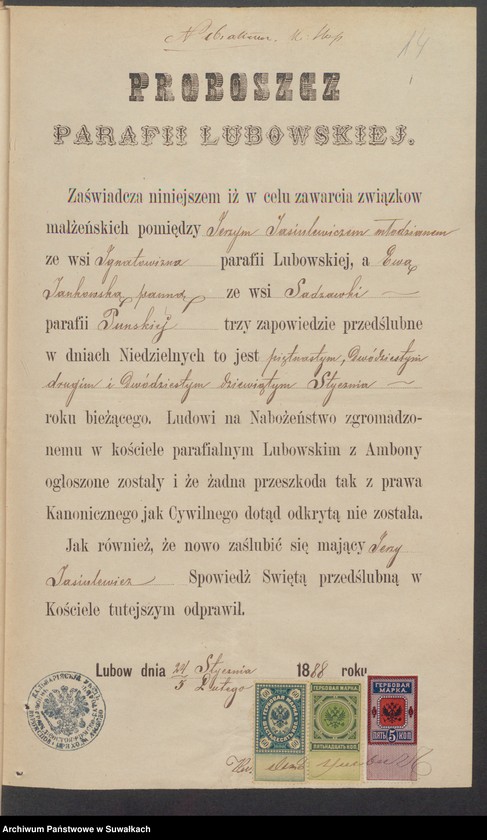 14
PROBOSZCZ
PARAFII LUBOWSKIEJ.
Zaświadcza niniejszem iż w celu zawarcia związkow
małżeńskich pomiędzy Jerzym Jasiulewiczem młodzianem
ze wsi Ignatowizna parafii Lubowskiej, a Ewą
Jankowską panną ze wsi Sadzawki
parafii Punskiej trzy zapowiedzie przedślubne
w dniach Niedzielnych to jest piętnastym, Dwódziestym
drugim i Dwódziestym dziewiątym Stycznia
roku bieżącego. Ludowi na Nabożeństwo zgromadzo-
nemu w kościele parafialnym Lubowskim z Ambony
ogłoszone zostały i że żadna przeszkoda tak z prawa
Kanonicznego jak Cywilnego dotąd odkrytą nie została.
Jak również, że nowo zaślubić się mający Jerzy
Jasiulewicz Spowiedź Swiętą przedślubną w
Kościele tutejszym odprawił.
Lubow dnia 24/5 Stycznia/Lutego 1888 roku
ГЕРБОВАЯ МАРКА
ГЕРБОВАЯ МАРКА
ПЯТНАДЦАТЬ КОП.
ГЕРБОВАЯ МАРКА
ПЯТЬ 5 КОП
Archiwum Państwowe w Suwałkach